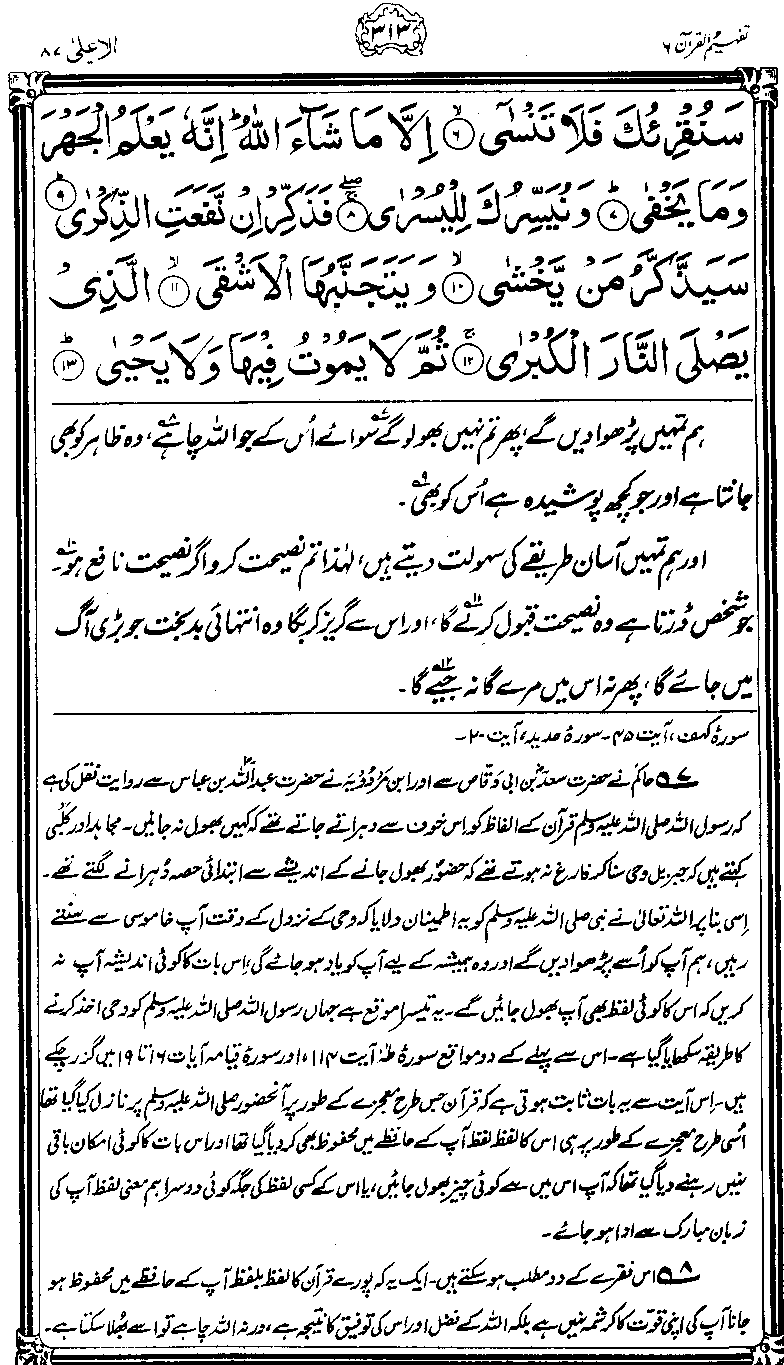 تفہیم القرآن ۶
۳۱۳
الاعلیٰ ۸۷
سَنُقْرِئُكَ فَلَا تَنْسٰٓى ۙ۝۶ اِلَّا مَا شَآءَ اللّٰهُ ؕ اِنَّهٗ يَعْلَمُ الْجَهْرَ
وَمَا يَخْفٰى ؕ۝۷ وَنُيَسِّرُكَ لِلْيُسْرٰى ۚۖ۝۸ فَذَكِّرْ اِنْ نَّفَعَتِ الذِّكْرٰى ؕ۝۹
سَيَذَّكَّرُ مَنْ يَّخْشٰى ۙ۝۱۰ وَيَتَجَنَّبُهَا الْاَشْقَى ۙ۝۱۱ الَّذِىْ
يَصْلَى النَّارَ الْكُبْرٰى ۚ۝۱۲ ثُمَّ لَا يَمُوْتُ فِيْهَا وَلَا يَحْيٰى ؕ۝۱۳
ہم تمہیں پڑھوا دیں گے، پھر تم نہیں بھولو گے۷ سوائے اُس کے جو اللہ چاہے۸، وہ ظاہر کو بھی
جانتا ہے اور جو کچھ پوشیدہ ہے اُس کو بھی۹۔
اور ہم تمہیں آسان طریقے کی سہولت دیتے ہیں، لہٰذا تم نصیحت کرو اگر نصیحت نافع ہو۱۰۔
جو شخص ڈرتا ہے وہ نصیحت قبول کرلے گا۱۱، اور اس سے گریز کریگا وہ انتہائی بدبخت جو بڑی آگ
میں جائے گا، پھر نہ اس میں مرے گا نہ جیے گا۱۲۔
سورۂ کہف، آیت ۴۵۔ سورۂ حدید، آیت ۲۰۔
۷ حاکم نے حضرت سعدؓ بن ابی وقاص سے اور ابن مَرْدُوْیَہ نے حضرت عبداللہؓ بن عباس سے روایت نقل کی ہے
کہ رسول اللہ صلی اللہ علیہ وسلم قرآن کے الفاظ کو اس خوف سے دہراتے جاتے تھے کہ کہیں بھول نہ جائیں۔ مجاہد اور کَلْبی
کہتے ہیں کہ جبریل وحی سنا کر فارغ نہ ہوتے تھے کہ حضورؐ بھول جانے کے اندیشے سے ابتدائی حصہ دُہرانے لگتے تھے۔
اِسی بنا پر اللہ تعالیٰ نے نبی صلی اللہ علیہ وسلم کو یہ اطمینان دلایا کہ وحی کے نزول کے وقت آپ خاموسی سے سنتے
رہیں، ہم آپ کو اُسے پڑھوا دیں گے اور وہ ہمیشہ کے لیے آپ کو یاد ہو جائے گی، اِس بات کا کوئی اندیشہ آپ نہ
کریں کہ اس کا کوئی لفظ بھی آپ بھول جائیں گے۔ یہ تیسرا موقع ہے جہاں رسول اللہ صلی اللہ علیہ وسلم کو وحی اخذ کرنے
کا طریقہ سکھایا گیا ہے۔ اس سے پہلے کے دو مواقع سورۂ طٰہٰ آیت ۱۱۴، اور سورۂ قیامہ آیات ۱۶ تا ۱۹ میں گزر چکے
ہیں۔ اِس آیت سے یہ بات ثابت ہوتی ہے کہ قرآن جس طرح معجزے کے طور پر آنحضور صلی اللہ علیہ وسلم پر نازل کیا گیا تھا
اُسی طرح معجزے کے طور پر ہی اس کا لفظ لفظ آپ کے حافظے میں محفوظ بھی کر دیا گیا تھا اور اس بات کا کوئی امکان باقی
نہیں رہنے دیا گیا تھا کہ آپ اس میں سے کوئی چیز بھول جائیں، یا اس کے کسی لفظ کی جگہ کوئی دوسرا ہم معنی لفظ آپ کی
زبان مبارک سے ادا ہو جائے۔
۸ اس فقرے کے دو مطلب ہو سکتے ہیں۔ ایک یہ کہ پورے قرآن کا لفظ بلفظ آپ کے حافظے میں محفوظ ہو
جانا آپ کی اپنی قوت کا کرشمہ نہیں ہے بلکہ اللہ کے فضل اور اس کی توفیق کا نتیجہ ہے، ورنہ اللہ چاہے تو اسے بُھلا سکتا ہے۔